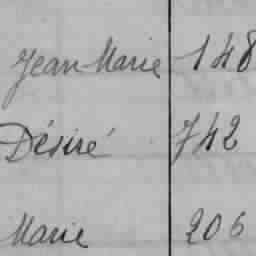 Jean Marie 148
Désiré 742
Marie 206